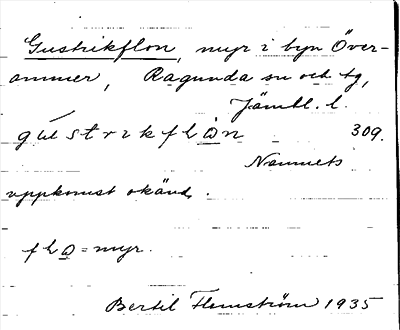 Gustrikflon, myr i byn Över-
ammer, Ragunda sn och tg,
Jämtl. l.
gu´strikflωn 309.
Namnets
uppkomst okänd.
flω = myr.
Bertil Flemström 1935